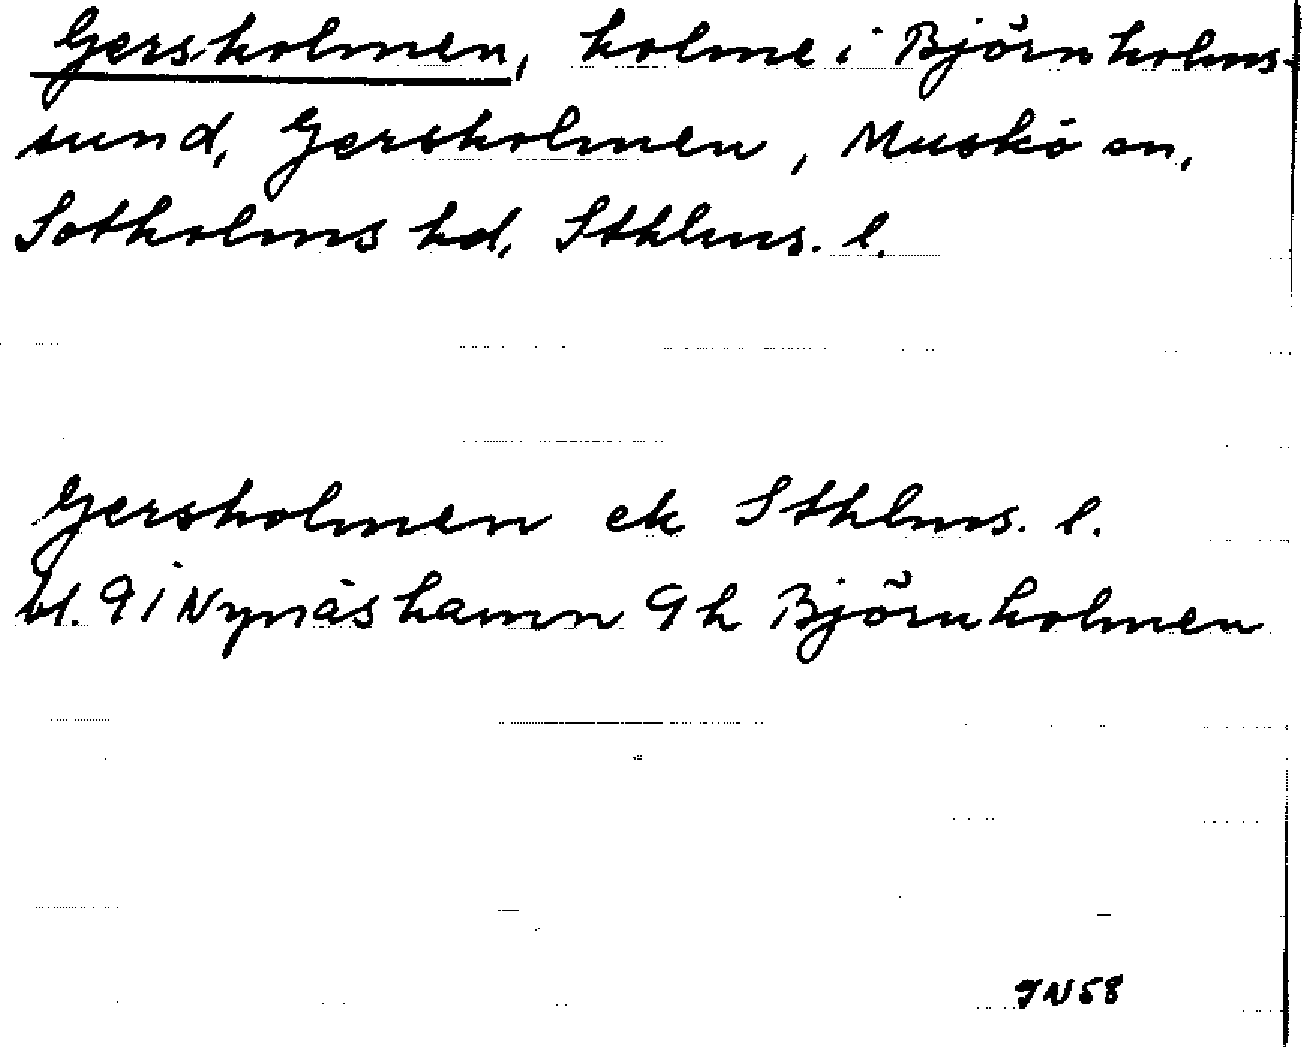 Gersholmen, holme i Björnholms-
sund, Gersholmen, Muskö sn,
Sotholms hd, Sthlms. l.
Gersholmen ek Sthlms. l.
bl. 9 i Nynäshamn 9 h Björnholmen
JN58